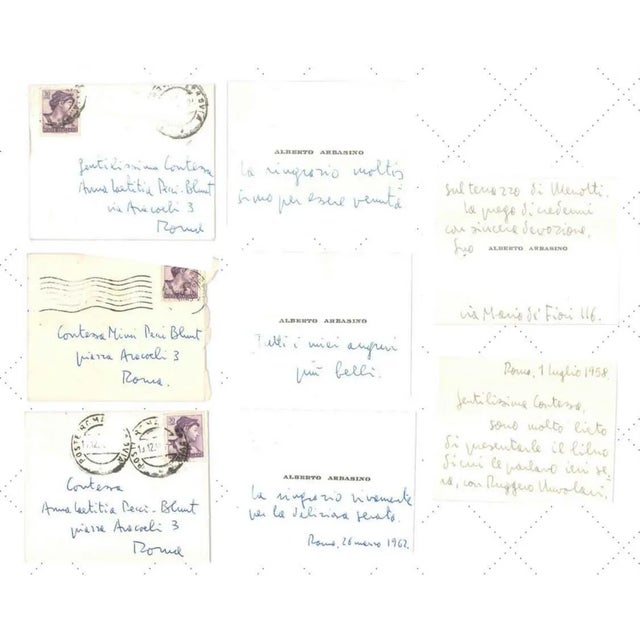 Gentilissima Contessa
Anna Laetitia Pecci-Blunt
via Aracoeli 3
Roma
ALBERTO ARBASINO
La ringrazio moltis
simo per essere venuta
sul terrazzo di Menotti.
La prego di credermi
con sincera devozione,
Suo
ALBERTO ARBASINO
via Mario de' Fiori 116.
Contessa Mimi Pecci Blunt
piazza Aracoeli 3
Roma.
ALBERTO ARBASINO
Tutti i miei auguri
più belli.
Roma, 1 luglio 1958.
Gentilissima Contessa,
sono molto lieto
di presentarle il libro
di cui le parlavo ieri se-
ra, con Ruggero
POSTE ROMA
Contessa
Anna Laetitia Pecci-Blunt
piazza Aracoeli 3
Roma
ALBERTO ARBASINO
La ringrazio vivamente
per la deliziosa serata.
Roma, 26 marzo 1962.